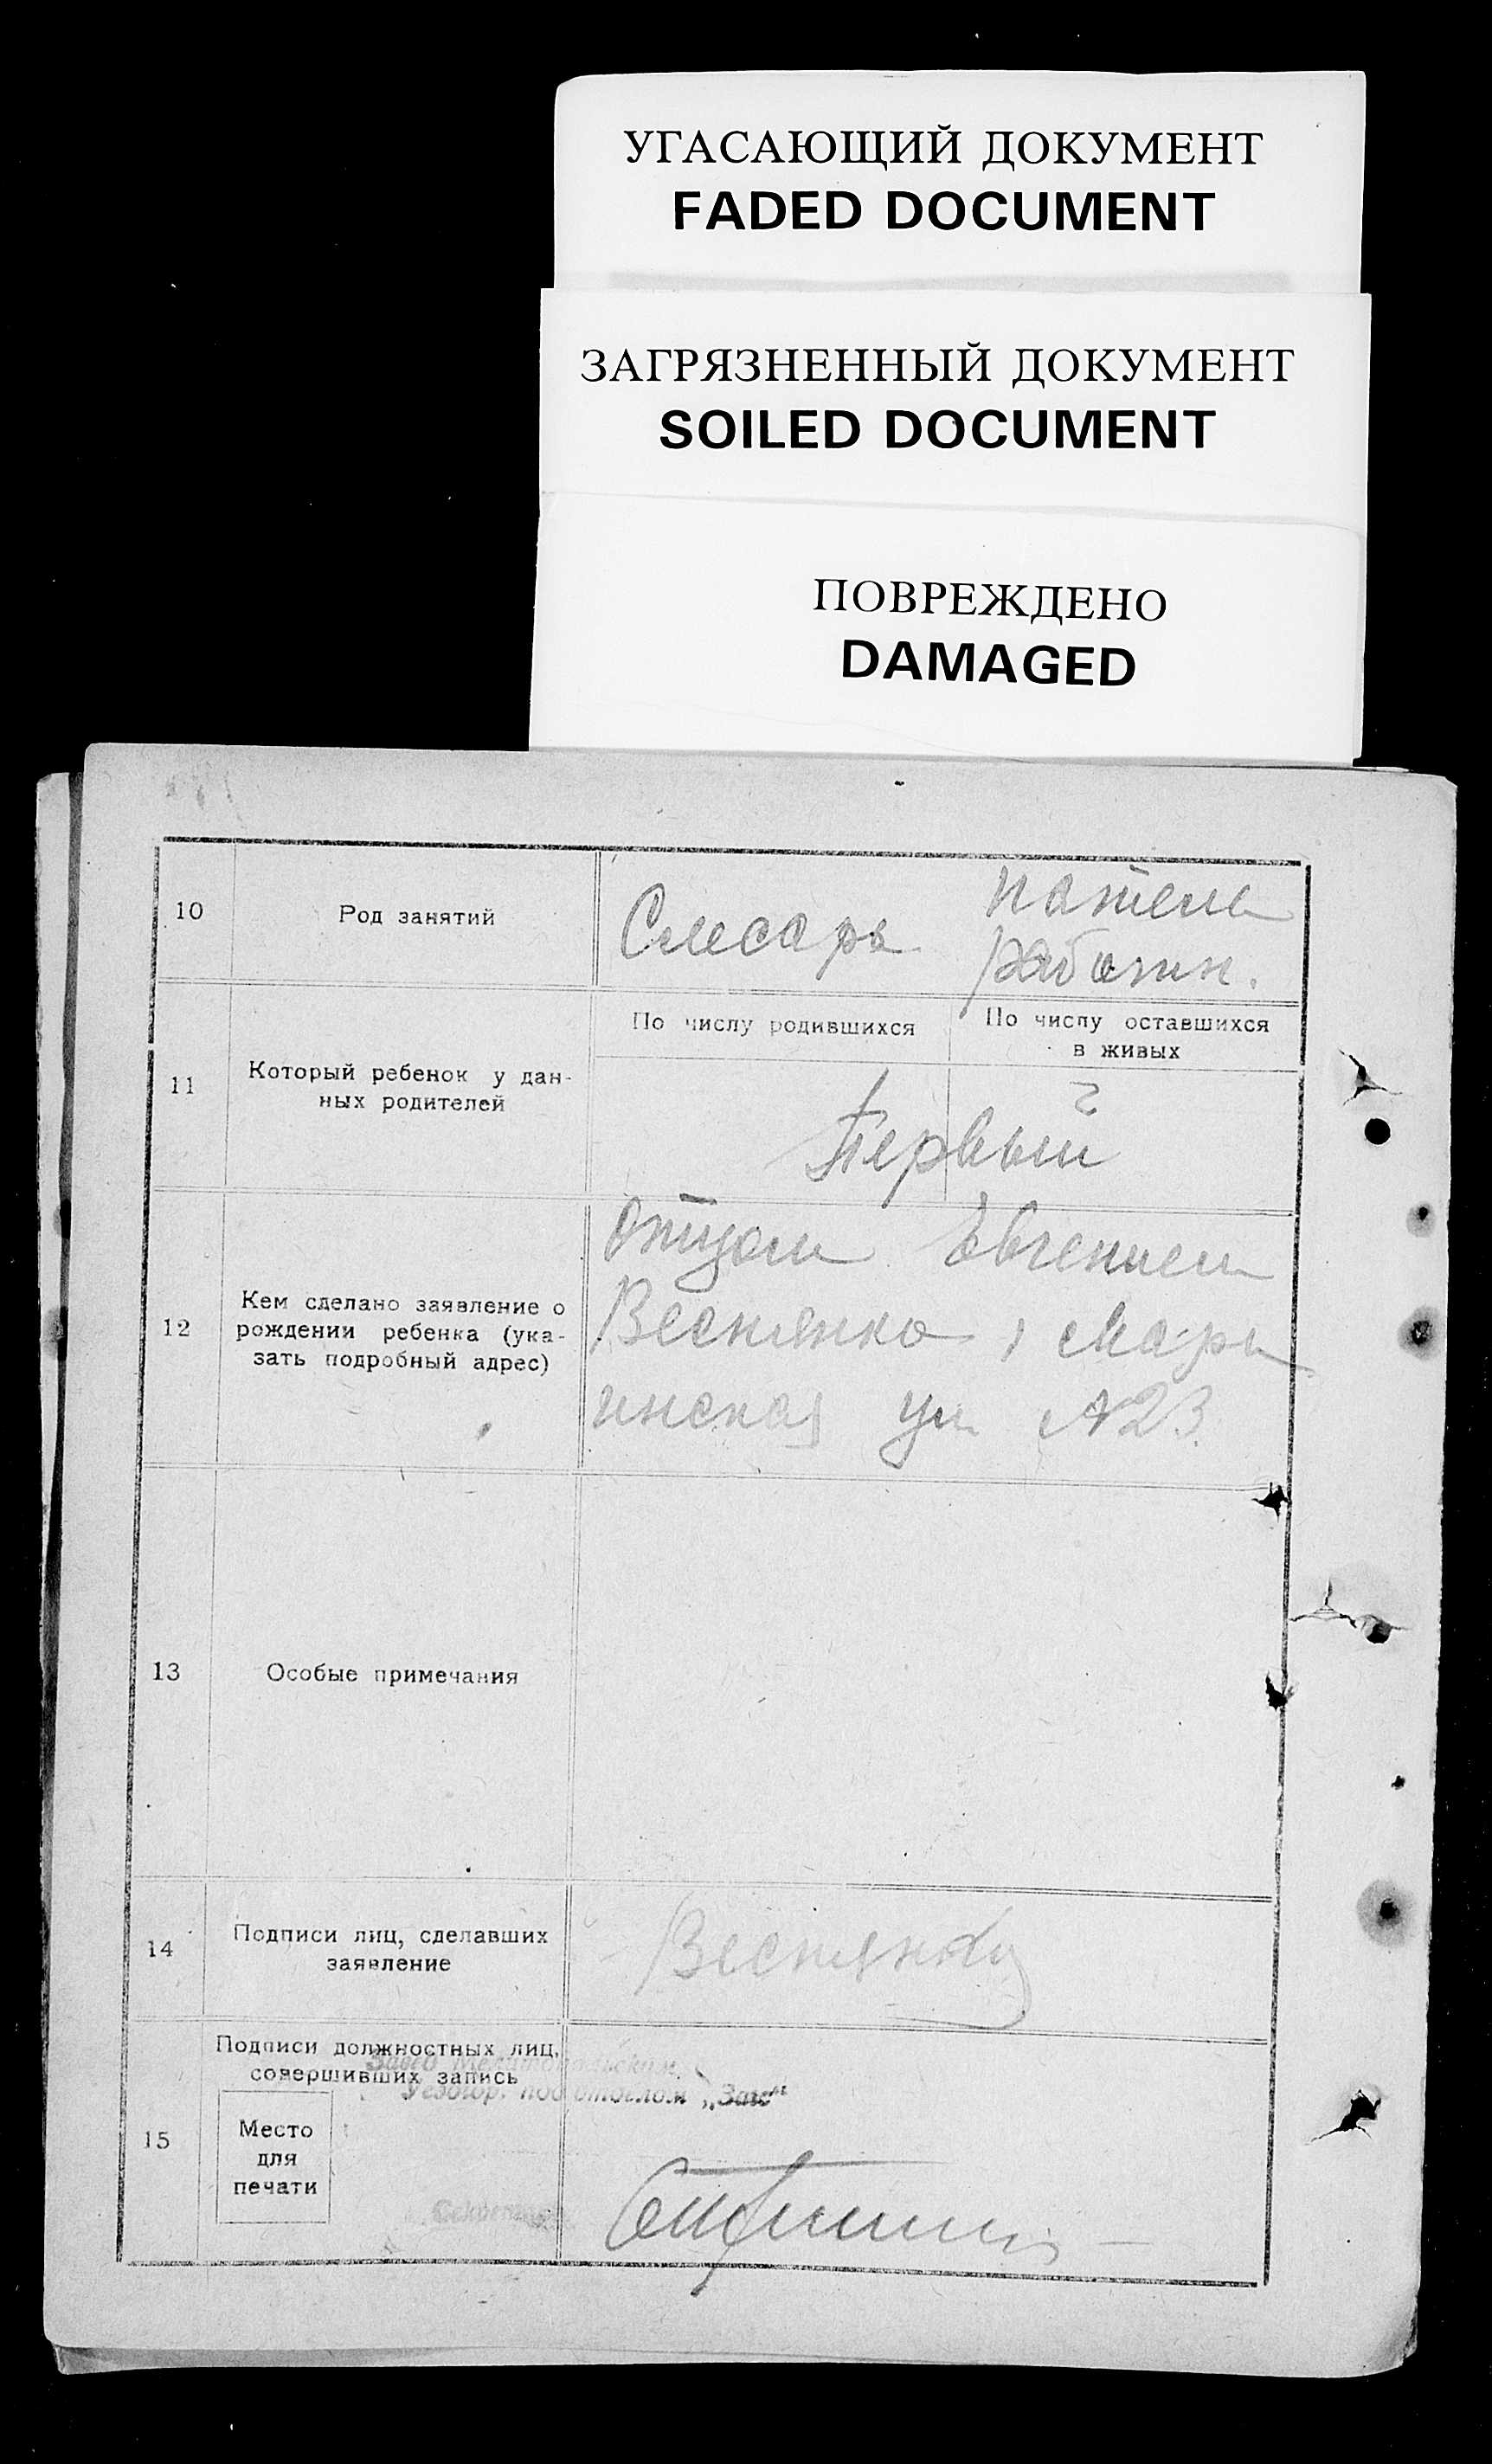 УГАСАЮЩИЙ ДОКУМЕНТ
FADED DOCUMENT
ЗАГРЯЗНЕННЫЙ ДОКУМЕНТ
SOILED DOCUMENT
ПОВРЕЖДЕНО
DAMAGED
10
Род занятий
Слесарь
работн.
11
Который ребенок у дан-
ных родителей
По числу родившихся
По числу оставшихся
в живых
Первый
12
Кем сделано заявление о
рождении ребенка (ука-
зать подробный адрес)
Отцом Евгением
Веснянко, Мари
инская ул №23.
13
Особые примечания
14
Подписи лиц, сделавших
заявление
Веснянко
15
Подписи должностных лиц,
совершивших запись
Завед Мелитопольским
Уездгор. подотделом „Загс"
Место
для
печати
Секретарь